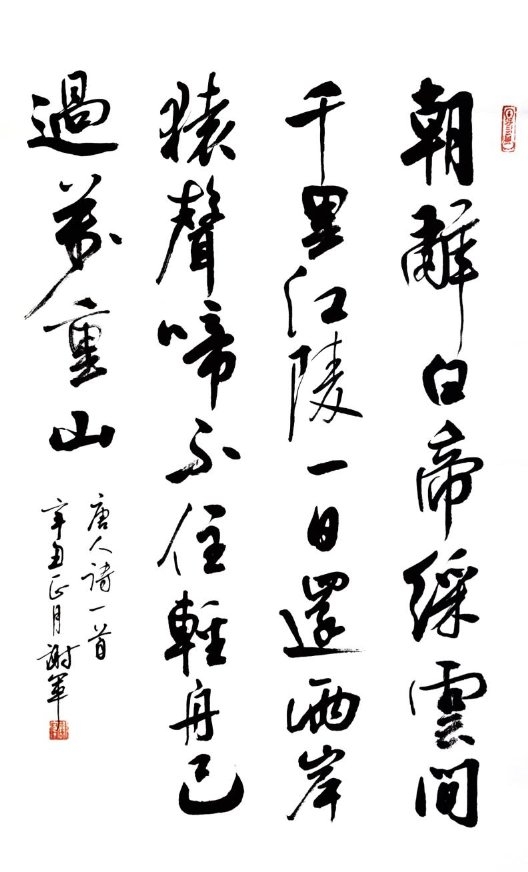 朝辭白帝綵雲間
千里江陵一日還兩岸
猿聲啼不住輕舟已
過萬重山
唐人詩一首
辛丑正月謝軍